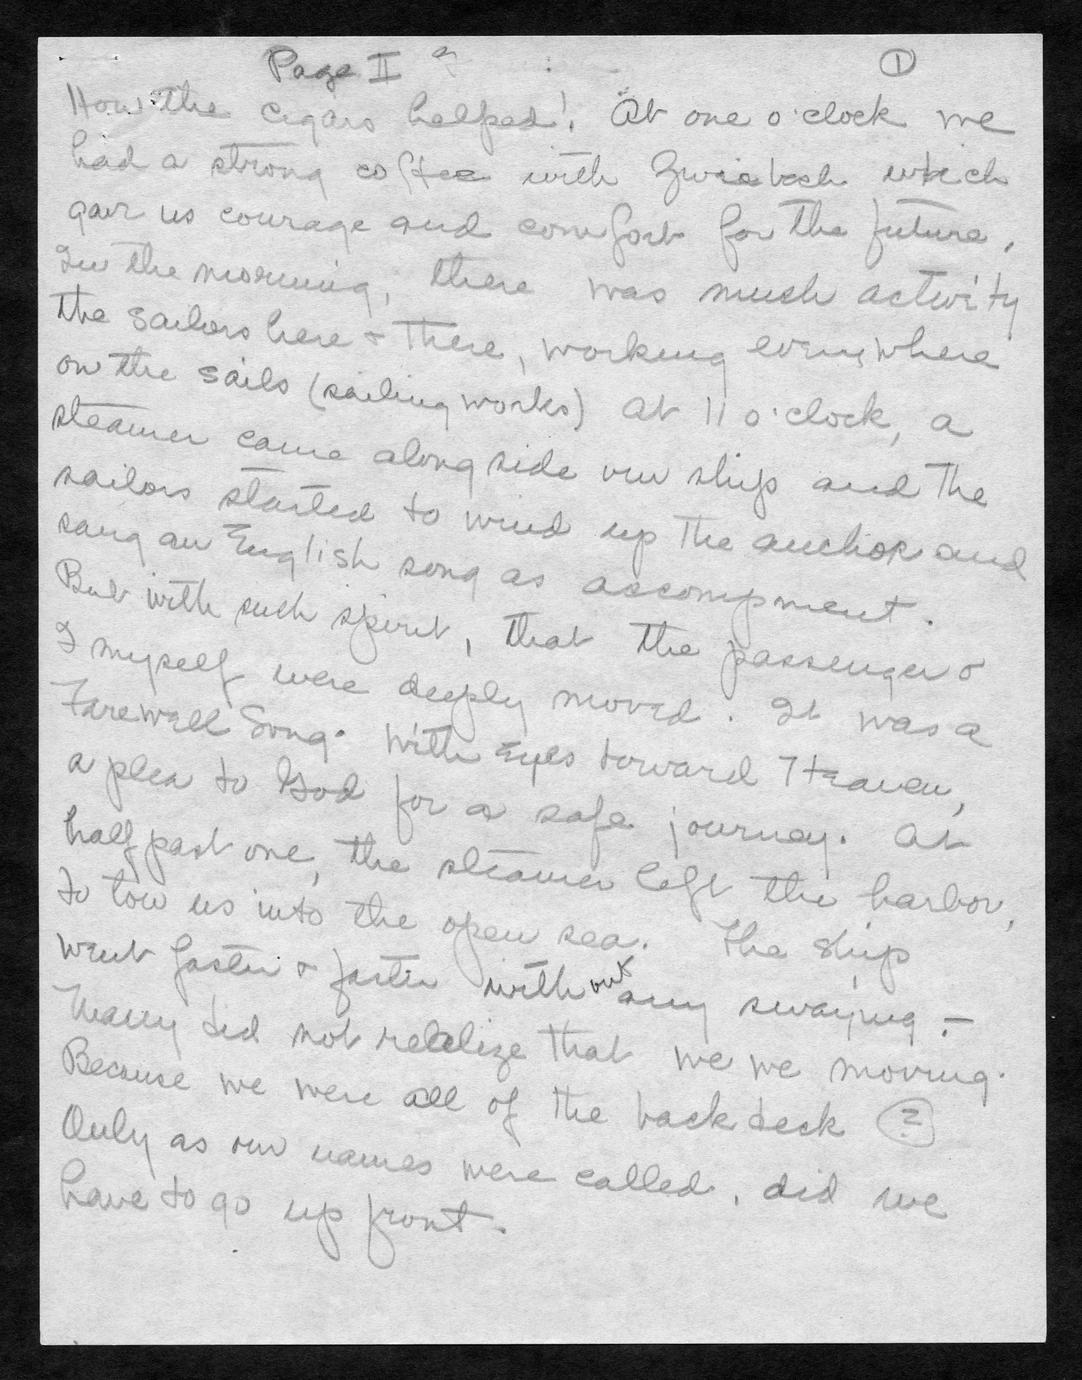 Page II ①
How the cigars helped! At one o'clock we
had a strong coffee with Zwieback which
gave us courage and comfort for the future.
In the morning, there was much activity
the sailors here + there, working everywhere
on the sails (sailing works) At 11 o'clock, a
steamer came alongside our ship and the
sailors started to wind up the anchor and
sang an English song as accompment.
But with such spirit, that the passenger &
I myself were deeply moved. It was a
Farewell Song. With Eyes toward Heaven,
a plea to God for a safe journey. At
half past one, the steamer left the harbor,
to tow us into the open sea. The ship
went faster + faster without any swaying. –
Many did not realize that we we moving.
Because we were all of the back deck (?)
Only as our names were called, did we
have to go up front.